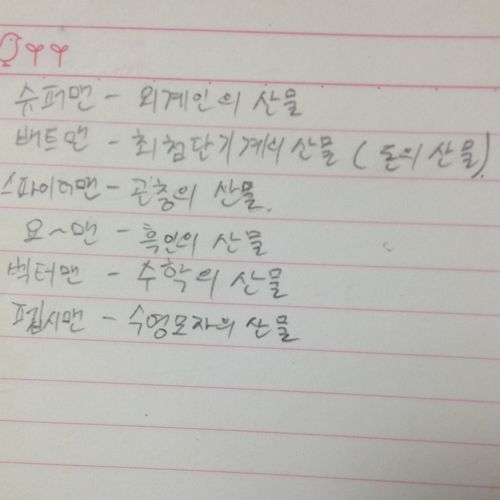 슈퍼맨 - 외계인의 산물
배트맨 - 최첨단기계의 산물 (돈의 산물).
스파이더맨 - 곤충의 산물.
요~맨 - 흑인의 산물
벡터맨 - 수학의 산물
프뢥시맨 - 수영모자의 산물